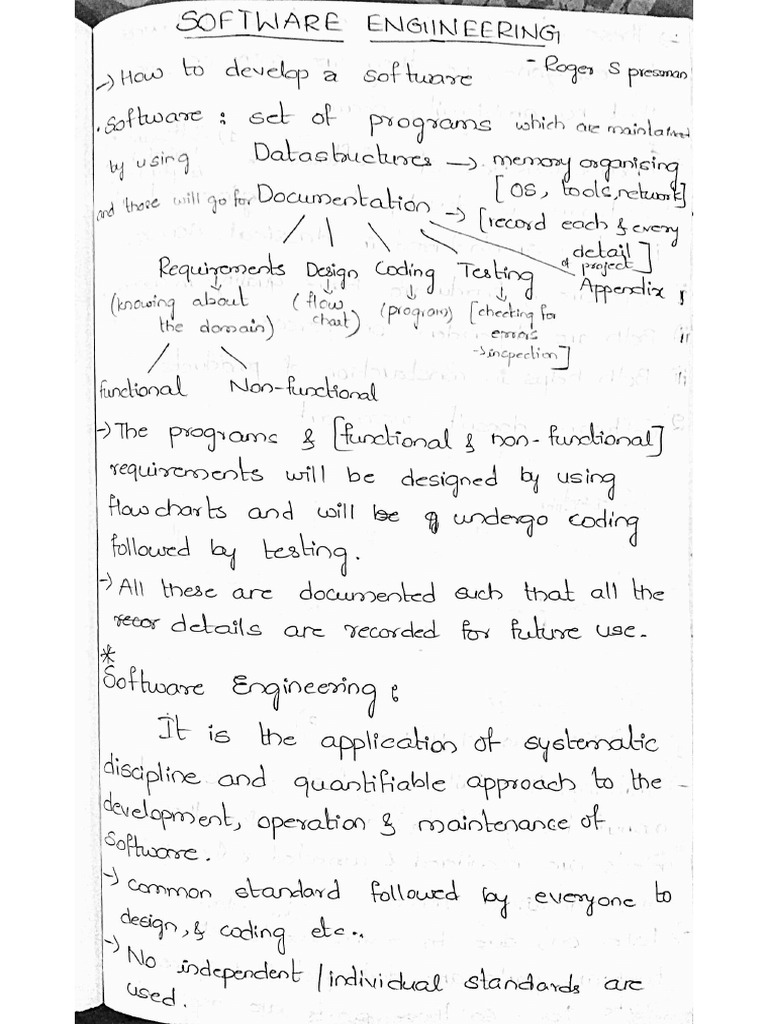 SOFTWARE ENGIINEERING
- Roger S pressman
→ How to develop a software
. Software : set of programs which are maintained
by using Datastuctures → memory organising
[OS, tools, network]
and those will go for Documentation → [record each & every
detail
of project]
Requirements Design Coding Testing Appendix
(knowing about
the domain) (flow
chart) (program) [checking for
errors
→ inspection]
functional Non-functional
→ The programs & [functional & non-functional]
requirements will be designed by using
flowcharts and will be undergo coding
followed by testing.
→ All these are documented such that all the
recor details are recorded for future use.
*
Software Engineering :
It is the application of systematic
discipline and quantifiable approach to the
development, operation & maintenance of
software.
→ common standard followed by everyone to
design, & coding etc..
→ No independent / individual standards are
used.